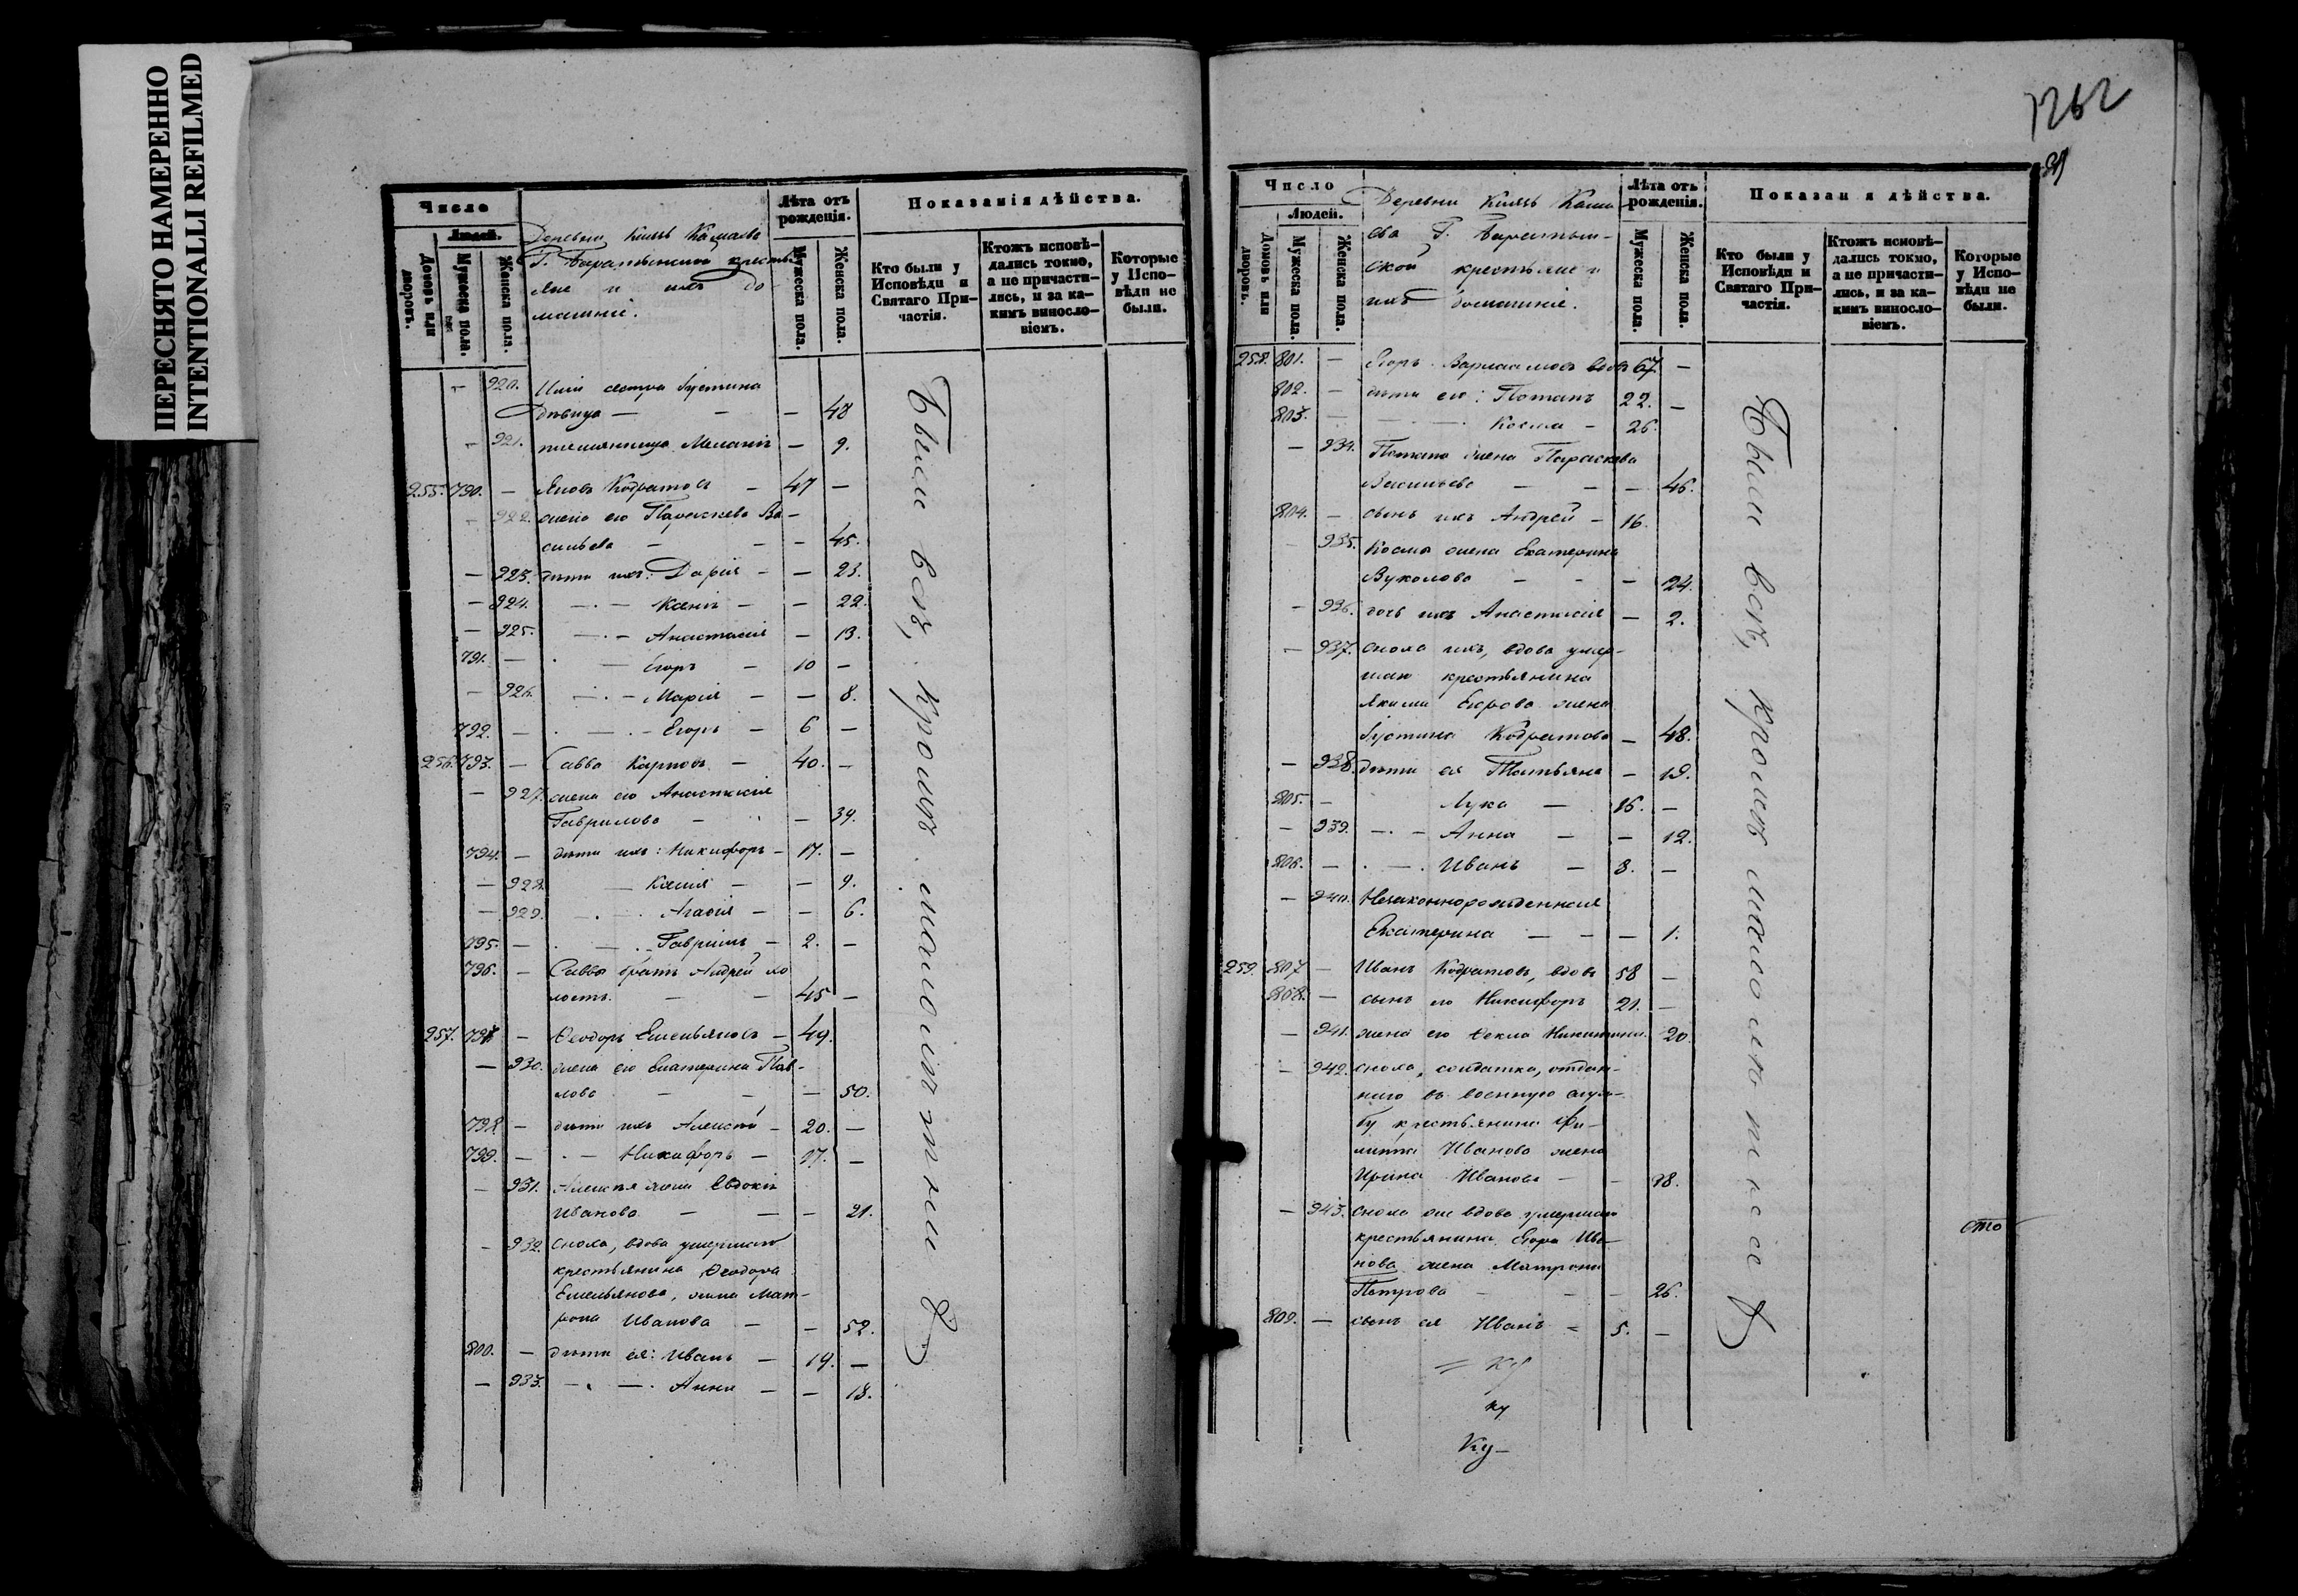 ПЕРЕСНЯТО НАМЕРЕННО
INTENTIONALLI REFILMED
Число
Людей.
Домовъ или дворовъ.
Мужеска пола.
Женска пола.
Деревни Князь Камаева
Г. Баратынской кресть
яне и ихъ до
машніе.
Лѣта отъ рожденія.
Мужеска пола.
Женска пола.
Показанія дѣйства.
Кто были у Исповѣди и Святаго Причастія.
Ктожъ исповѣдались токмо, а не причастились, и за какимъ винословіемъ.
Которые у Исповѣди не были.
— 920. сестра Іустина
дѣвица — — — 48
— 921. племянница Меланія — 9.
255. 790. — Яковъ Кодратовъ — 47 —
— 922. жена его Параскева Ва —
сильева — — — 45.
— 923. дѣти ихъ: Дарія — — 23.
— 924. — Ксенія — — 22.
— 925. — Анастасія — 13.
791. — — Егоръ — 10 —
— 926. — Марія — — 8.
792. — — Егоръ — 6 —
256. 793. — Савва Карповъ — 40. —
— 927. жена его Анастасія
Гаврилова — — 39.
794. — дѣти ихъ: Никифоръ — 17. —
— 928. — Ксенія — — 9.
— 929. — Агафія — — 6.
795. — — Гавріилъ — 2. —
796. — Саввы братъ Андрей хо
лостъ. — — 45 —
257. 797 — Ѳеодоръ Емельяновъ — 49.
— 930. жена его Екатерина Пав-
лова — — — 50.
798 — дѣти ихъ Алексѣй — 20. —
799. — — Никифоръ — 17. —
— 931. Алексѣя жена Евдокія
Иванова — — — 21.
— 932. Сноха, вдова умершаго
крестьянина Ѳеодора
Емельянова, жена Мат-
рона Иванова — — 52.
800. — дѣти ея: Иванъ — 19. —
— 933. — Анна — — 18.
Были всѣ, кромѣ малолѣтнихъ
1262
Число
Людей.
Домовъ или дворовъ.
Мужеска пола.
Женска пола.
Деревни Князь Кама
ева Г. Баратын-
ской крестьяне и
ихъ домашніе.
Лѣта отъ рожденія.
Мужеска пола.
Женска пола.
Показан я дѣйства.
Кто были у Исповѣди и Святаго Причастія.
Ктожъ исповѣдались токмо, а не причастились, и за какимъ винословіемъ.
Которые у Исповѣди не были.
258. 801. — Егоръ Варлаамовъ вдовъ 67 —
802. — дѣти его: Потапъ 22. —
803. — Косма — 26.
— 934. Потапа жена Параскева
Васильева — — — 46.
804. — сынъ ихъ Андрей — 16.
935. Космы жена Екатерина
Вуколова — — — 24.
— 936. дочь ихъ Анастасія — 2.
— 937. Сноха ихъ, вдова умер-
шаго крестьянина
Якима Егорова жена
Іустина Кодратова — 48.
— 938. дѣти ея Татьяна — 19.
805. — Лука — 16. —
— 939. — Анна — — 12.
806. — — Иванъ — 8. —
— 940. Незаконнорожденная
Екатерина — — — 1.
259. 807 — Иванъ Кодратовъ, вдовъ 58 —
808. — сынъ его Никифоръ 21. —
— 941. жена его Ѳекла Никитина 20.
— 942. сноха, солдатка, отдан-
наго въ военную служ-
бу крестьянина Фи-
липпа Иванова жена
Ирина Иванова — — 28.
— 943. Сноха же вдова умершаго
крестьянина Егора Ива-
нова жена Матрона
Петрова — — — 26.
809. — сынъ ея Иванъ — 5. —
Были всѣ, кромѣ малолѣтнихъ
Ку